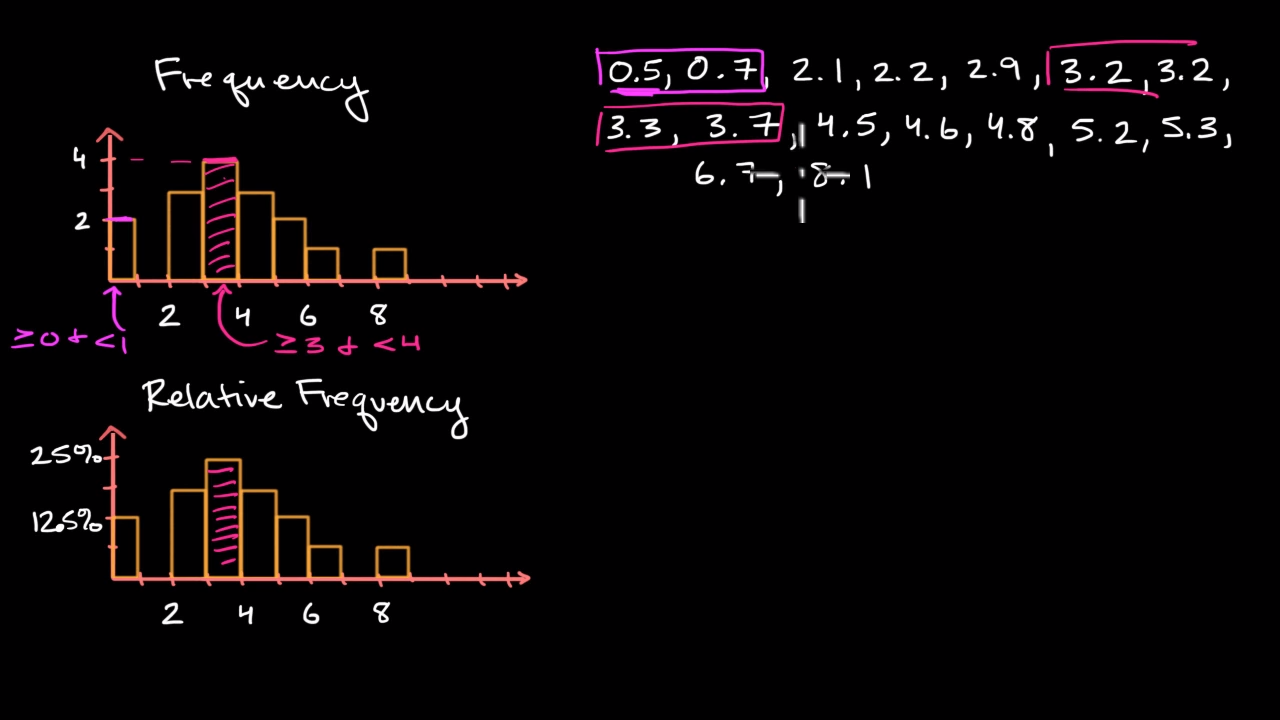 Frequency
4
2
2 4 6 8
≥0 + <1
≥3 + <4
Relative Frequency
25%
12.5%
2 4 6 8
0.5, 0.7, 2.1, 2.2, 2.9, 3.2, 3.2,
3.3, 3.7, 4.5, 4.6, 4.8, 5.2, 5.3,
6.7, 8.1